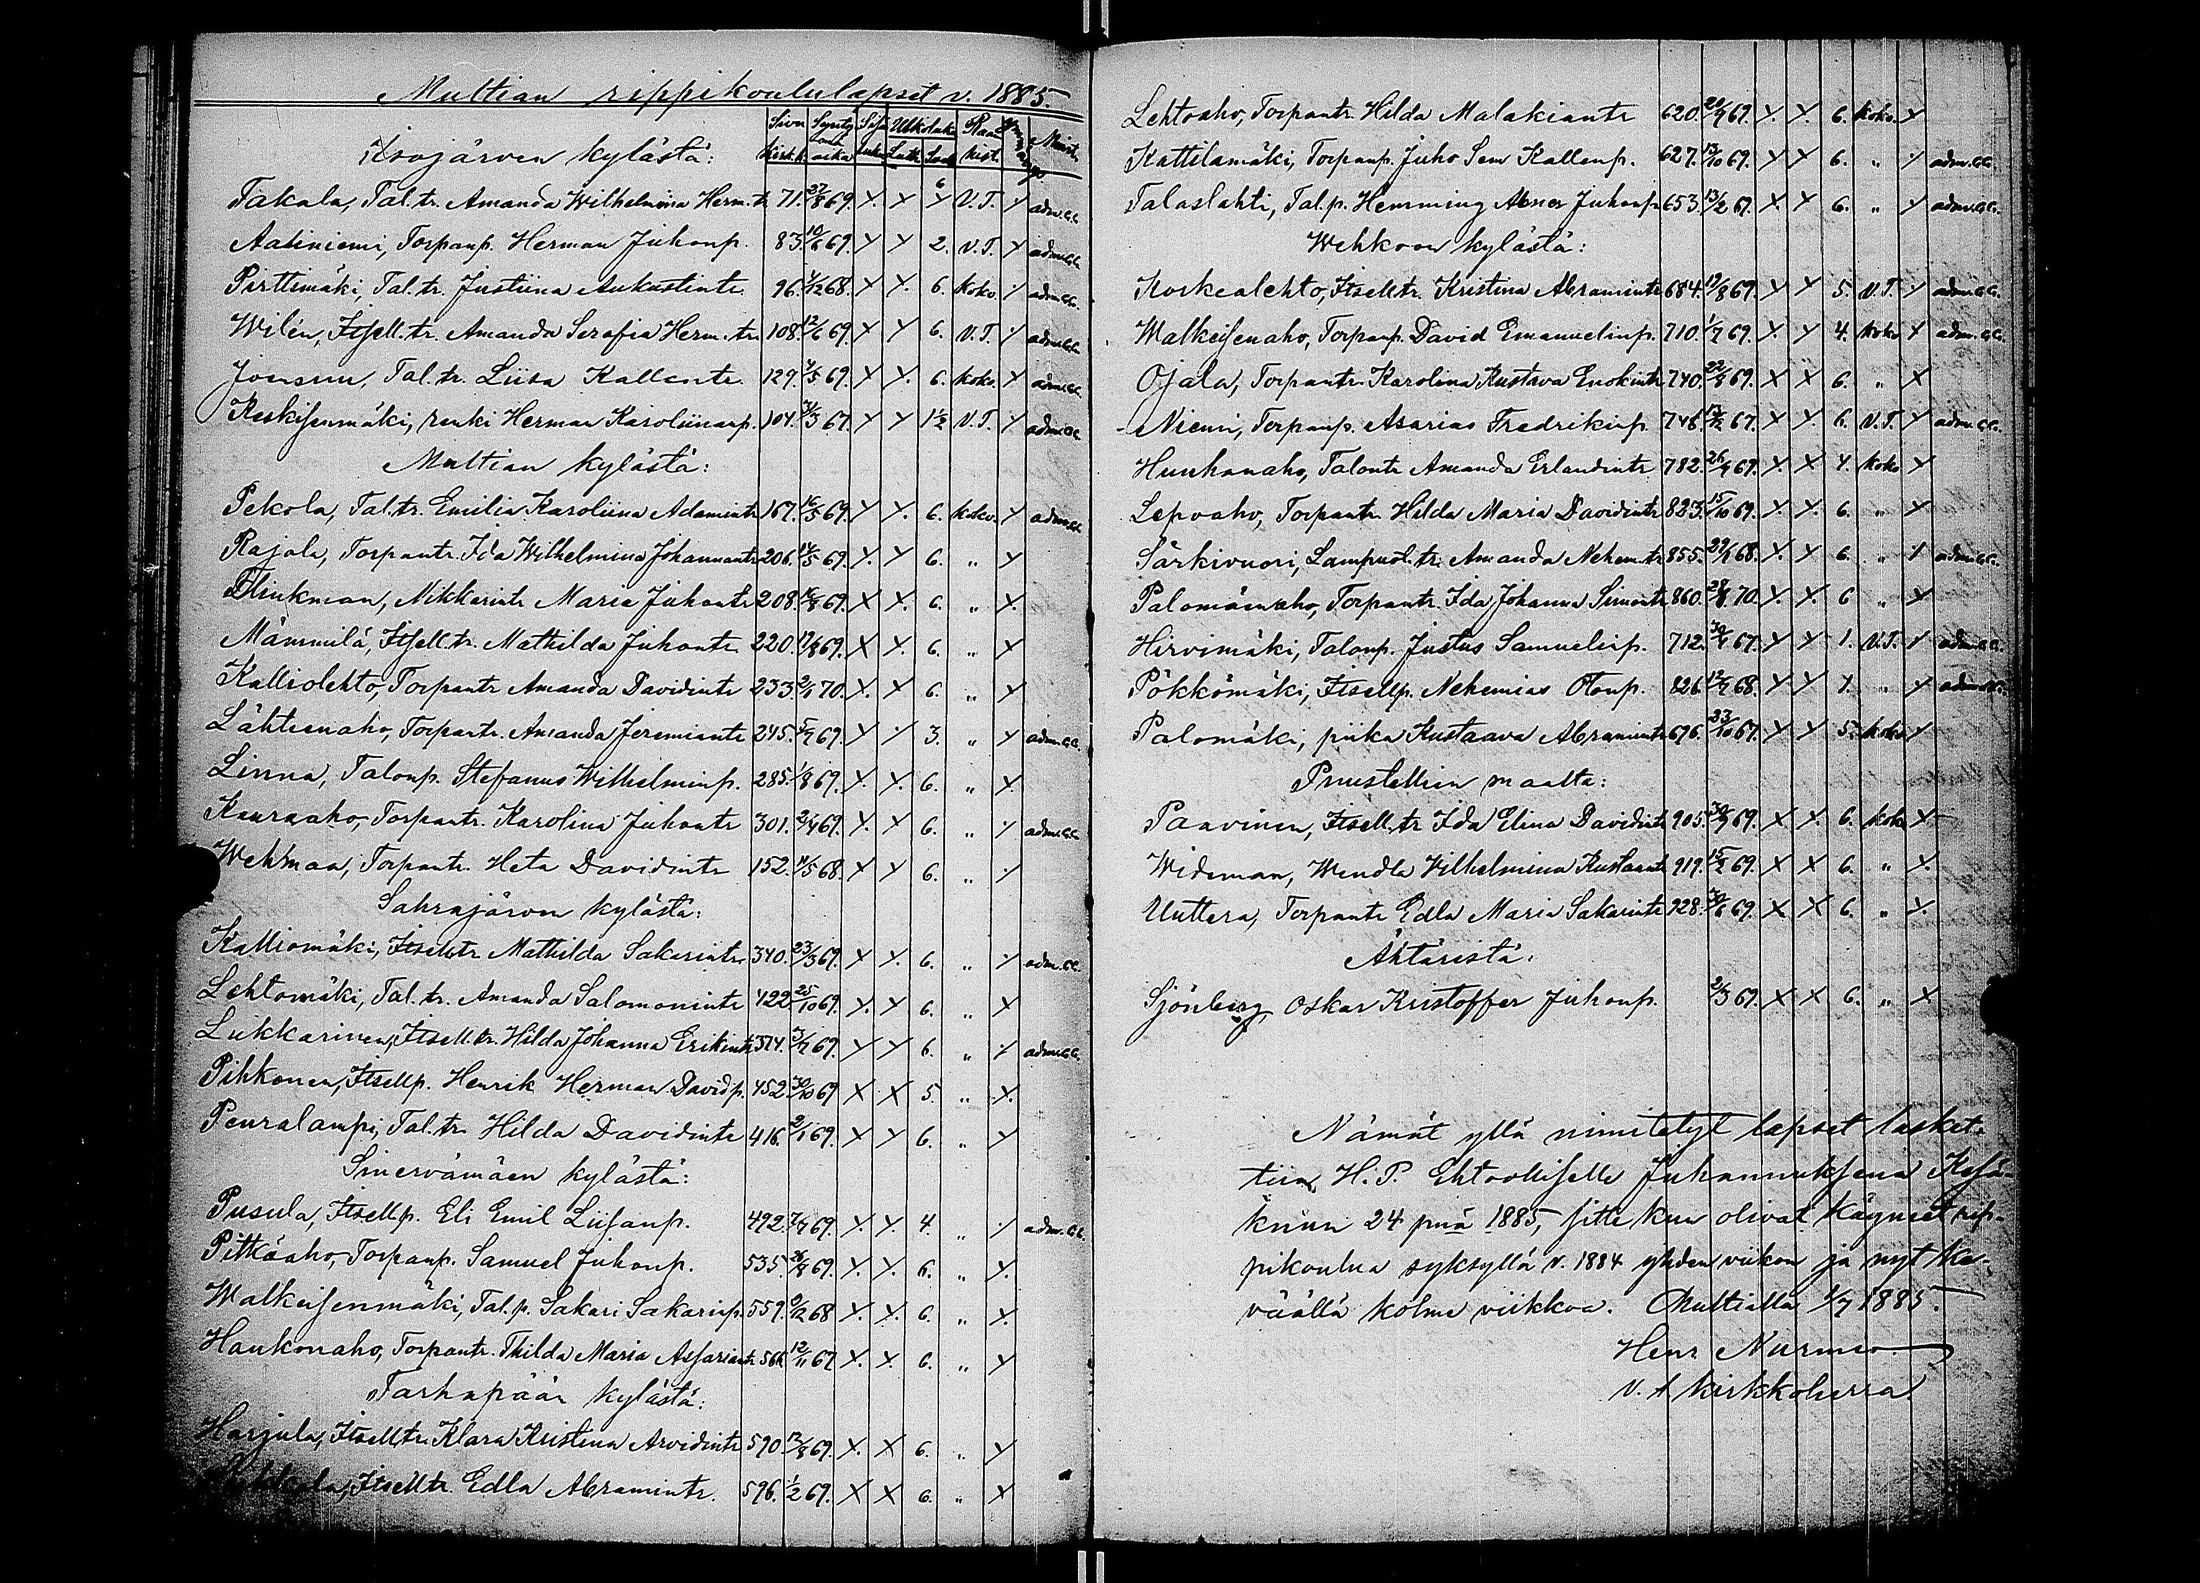 Multian rippikoululapset v. 1885.
Sivu kirk.k. Synty aika Sisä luku Ulkoluku Raa kist. Muist.
Isojärven kylästä:
Takala, Tal.tr. Amanda Wilhelmina Herm.tr 71. 27/8 69. x. x 6 x V.T. x adm.c.c.
Aatiniemi, Torpanp. Herman Juhonp. 83. 10/6 69. x x 2. V.T. x adm.c.c.
Perttimäki, Tal.tr. Justiina Aukustintr. 96. 4/12 68. x x. 6. koko. x adm.c.c.
Wilén, Itsell.tr. Amanda Serafia Herm.tr. 108. 12/6 69. x x 6. V.T. x adm.c.c.
Jonsuu, Tal.tr. Liisa Kallentr. 129. 4/5 69. x x. 6. koko. x adm.c.c.
Keskisenmäki, renki Herman Karoliinanp. 104. 31/3 67. x x 1½ V.T. x adm.c.c.
Multian kylästä:
Pekola, Tal.tr. Emilia Karoliina Adamintr 167. 16/5 69. x x. 6. koko. x adm.c.c.
Rajala, Torpantr. Ida Wilhelmina Johannantr 206. 14/5 69. x x 6. " x
Flinkman, Nikkarintr Maria Juhontr 208. 16/8 69. x x. 6. " x.
Mämmilä, Itsell.tr. Mathilda Juhontr. 220. 17/8 69. x x. 6. " x
Kalliolehto, Torpantr Amanda Davidintr 233 2/1 70. x. x 6. " x
Lähteenaho, Torpantr. Amanda Jeremiantr 245. 5/9 69. x x 3. " x adm.c.c.
Linna, Talonp. Stefanus Wilhelminp. 285. 1/8 69. x. x. 6. " x.
Kauraaho, Torpantr. Karolina Juhontr 301. 2/4 69. x. x 6. " x adm.c.c.
Wehman, Torpantr. Heta Davidintr 152. 11/5 68. x x 6. " x
Sahrajärven kylästä:
Kalliomäki, Itsell.tr Mathilda Sakarintr. 340. 23/3 69. x x. 6. " x adm.c.c.
Lehtomäki, Tal.tr. Amanda Salomonintr 422 25/10 69. x. x 6. " x
Liikkarinen, Itsell.tr. Hilda Johanna Erikintr 374. 3/7 69. x x 6. " x adm.c.c.
Pihkonen, Itsellp. Henrik Herman Davidp. 452. 30/10 69 x x 5. " x.
Peuralampi, Tal.tr. Hilda Davidintr 416. 2/1 69. x x 6. " x
Sinervämäen kylästä:
Pusula, Itsellp. Eli Emil Liisanp. 492. 7/7 69. x. x. 4. " x adm.c.c.
Pitkäaho, Torpanp. Samuel Juhonp. 535. 26/8 69. x. x. 6. " x.
Walkeisenmäki, Tal.p. Sakari Sakarinp. 559. 9/12 68 x x. 6. " x.
Haukonaho, Torpantr. Thilda Maria Assariantr 566. 12/11 67 x. x. 6. " x
Tarhapään kylästä:
Harjula, Itsell.tr Klara Kristina Arvidintr 590. 13/8 69. x. x 6. " x
Itsell.tr. Edla Abramintr. 596. 1/2 69. x x 6. " x
Lehtoaho, Torpantr. Hilda Malakiantr 620. 20/9 69. x. x. 6. koko. x
Kattilamäki, Torpanp. Juho Sem Kallenp. 627. 13/10 69. x x 6. " x adm.c.c.
Talaslahti, Tal.p. Hemming Abner Juhonp. 653. 13/2 67. x. x 6. " x adm.c.c.
Wehkoon kylästä:
Korkealehto, Itsell.tr. Kristina Abramintr 684. 19/8 69. x x 5. V.T. x adm.c.c.
Walkeisenaho, Torpanp. David Emanuelinp. 710. 1/7 69. x. x 4. koko x adm.c.c.
Ojala, Torpantr. Karolina Kustava Enokintr 740. 22/8 69. x x 6. " x
Niemi, Torpanp. Asarias Fredrikinp. 746. 13/12 67. x x. 6. V.T. x adm.c.c.
Huuhanaho, Talontr Amanda Erlandintr 782. 26/9 69. x. x 4. koko x
Lepoaho, Torpantr. Hilda Maria Davidintr 823. 15/10 69. x. x. 6. " x
Särkivuori, Lampuot.tr. Amanda Nehem.tr 855. 29/1 68. x. x 6. " x adm.c.c.
Palomäenaho, Torpantr. Ida Johanna Simontr 860. 28/8 70. x. x. 6 " x
Hirvimäki, Talonp. Justus Samuelinp. 712. 30/4 67. x x 1. V.T. x adm.c.c.
Pökkömäki, Itsellp. Nehemias Otonp. 826. 12/7 68. x x 1. " x adm.c.c.
Palomäki, piika Kustaava Abramintr 676. 23/10 67. x x 5. koko x
Pruustellin maalta:
Paavinen, Itsell.tr Ida Elina Davidintr 905. 30/9 69. x x. 6. koko x.
Wideman, Wendla Wilhelmina Kustaantr 919. 15/2 69. x x 6. " x.
Uuttera, Torpantr Edla Maria Sakarintr 928. 30/6 69. x x 6. " x.
Ähtäristä:
Sjönberg, Oskar Kristoffer Juhonp. 2/3 69. x x 6. " x
Nämät yllä nimitetyt lapset lasket-
tiin H.P. Ehtoolliselle Juhannuksena Kesä-
kuun 24 pnä 1885, sitte kun olivat käyneet rip-
pikoulua syksyllä v. 1884 yhden viikon ja nyt ke-
väällä kolme viikkoa. Multialla 1/7 1885.
Henr Nurmio
v. t. kirkkoherra.